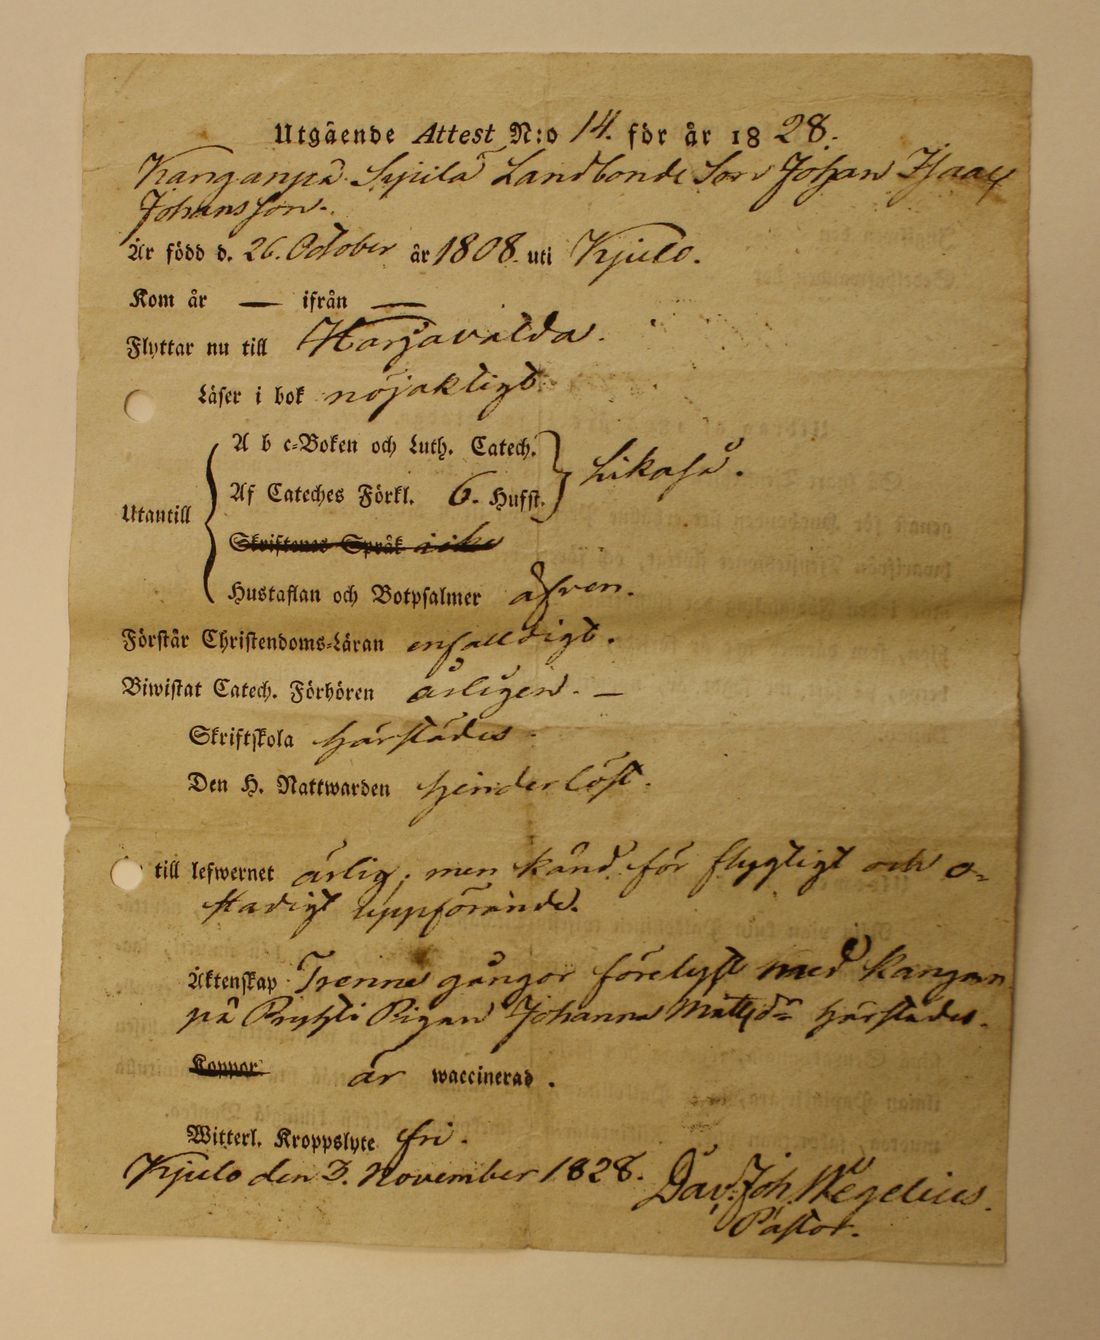 Utgående Attest N:o 14. för år 1828.
Kanganpä Sipilä Landbonde Son Johan Isaac
Johansson.
Är född d. 26. October år 1808. uti Kjulo.
Kom år — ifrån —
Flyttar nu till Harjavalda.
Läser i bok nöjaktigt
A b c-Boken och Luth. Catech.
Af Cateches Förkl. 6. Hufst. likaså.
Utantill
Skriftenes Språk icke
Hustaflan och Botpsalmer äfven.
Förstår Christendoms-Läran enfalldigt.
Biwistat Catech. Förhören årligen. —
Skriftskola härstädes
Den H. Nattwarden hinderlöst.
till lefwernet ärlig, men känd för flygtigt och o-
stadigt uppförande.
Äktenskap Trenne gångor förelyst med Kangan
pä Pigan Johanna Mattsdr härstädes.
Koppor är waccinerad.
Witterl. Kroppslyte fri.
Kjulo den 3. November 1828. Dav. Joh. Wegelius.
Pastor.